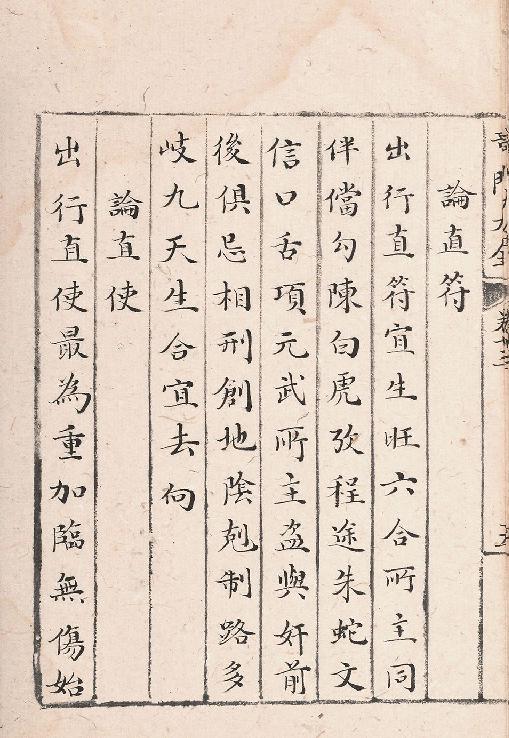 論直符
出行直符宜生旺六合所主同
伴儅勾陳白虎攷程途朱蛇文
信口舌項元武所主盗與奸前
後俱忌相刑創地陰剋制路多
岐九天生合宜去向
論直使
出行直使最為重加臨無傷始